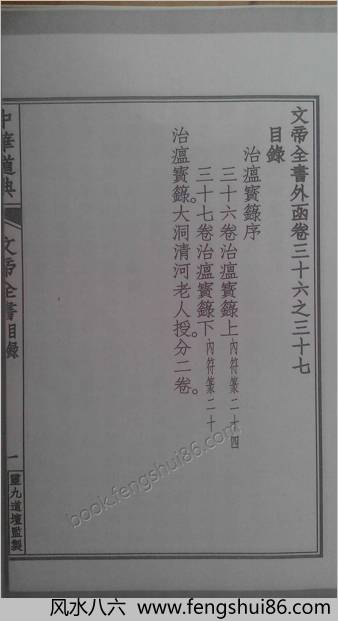 文帝全書外函卷三十六之三十七
目錄
治瘟寶籙序
三十六卷治瘟寶籙上內符篆二十四
三十七卷治瘟寶籙下內符篆二十
治瘟寶籙。大洞清河老人授分二卷。
中華道典
文帝全書目錄
一
靈九道壇監製
book.fengshui86.com
风水八六 www.fengshui86.com